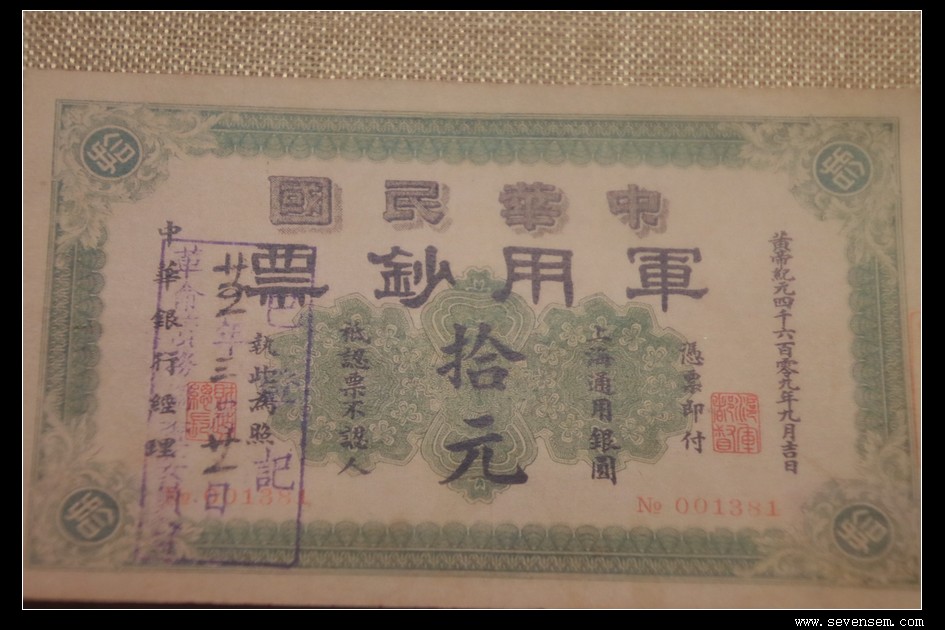 中華民國
軍用鈔票
黃帝紀元四千六百零九年九月吉日
憑票即付
上海通用銀圓
拾元
祗認票不認人
執此為照
中華銀行經理
滬軍都督
財政總長
廿2年三四廿2日
已登記
№ 001381
№ 001381
www.sevensem.com